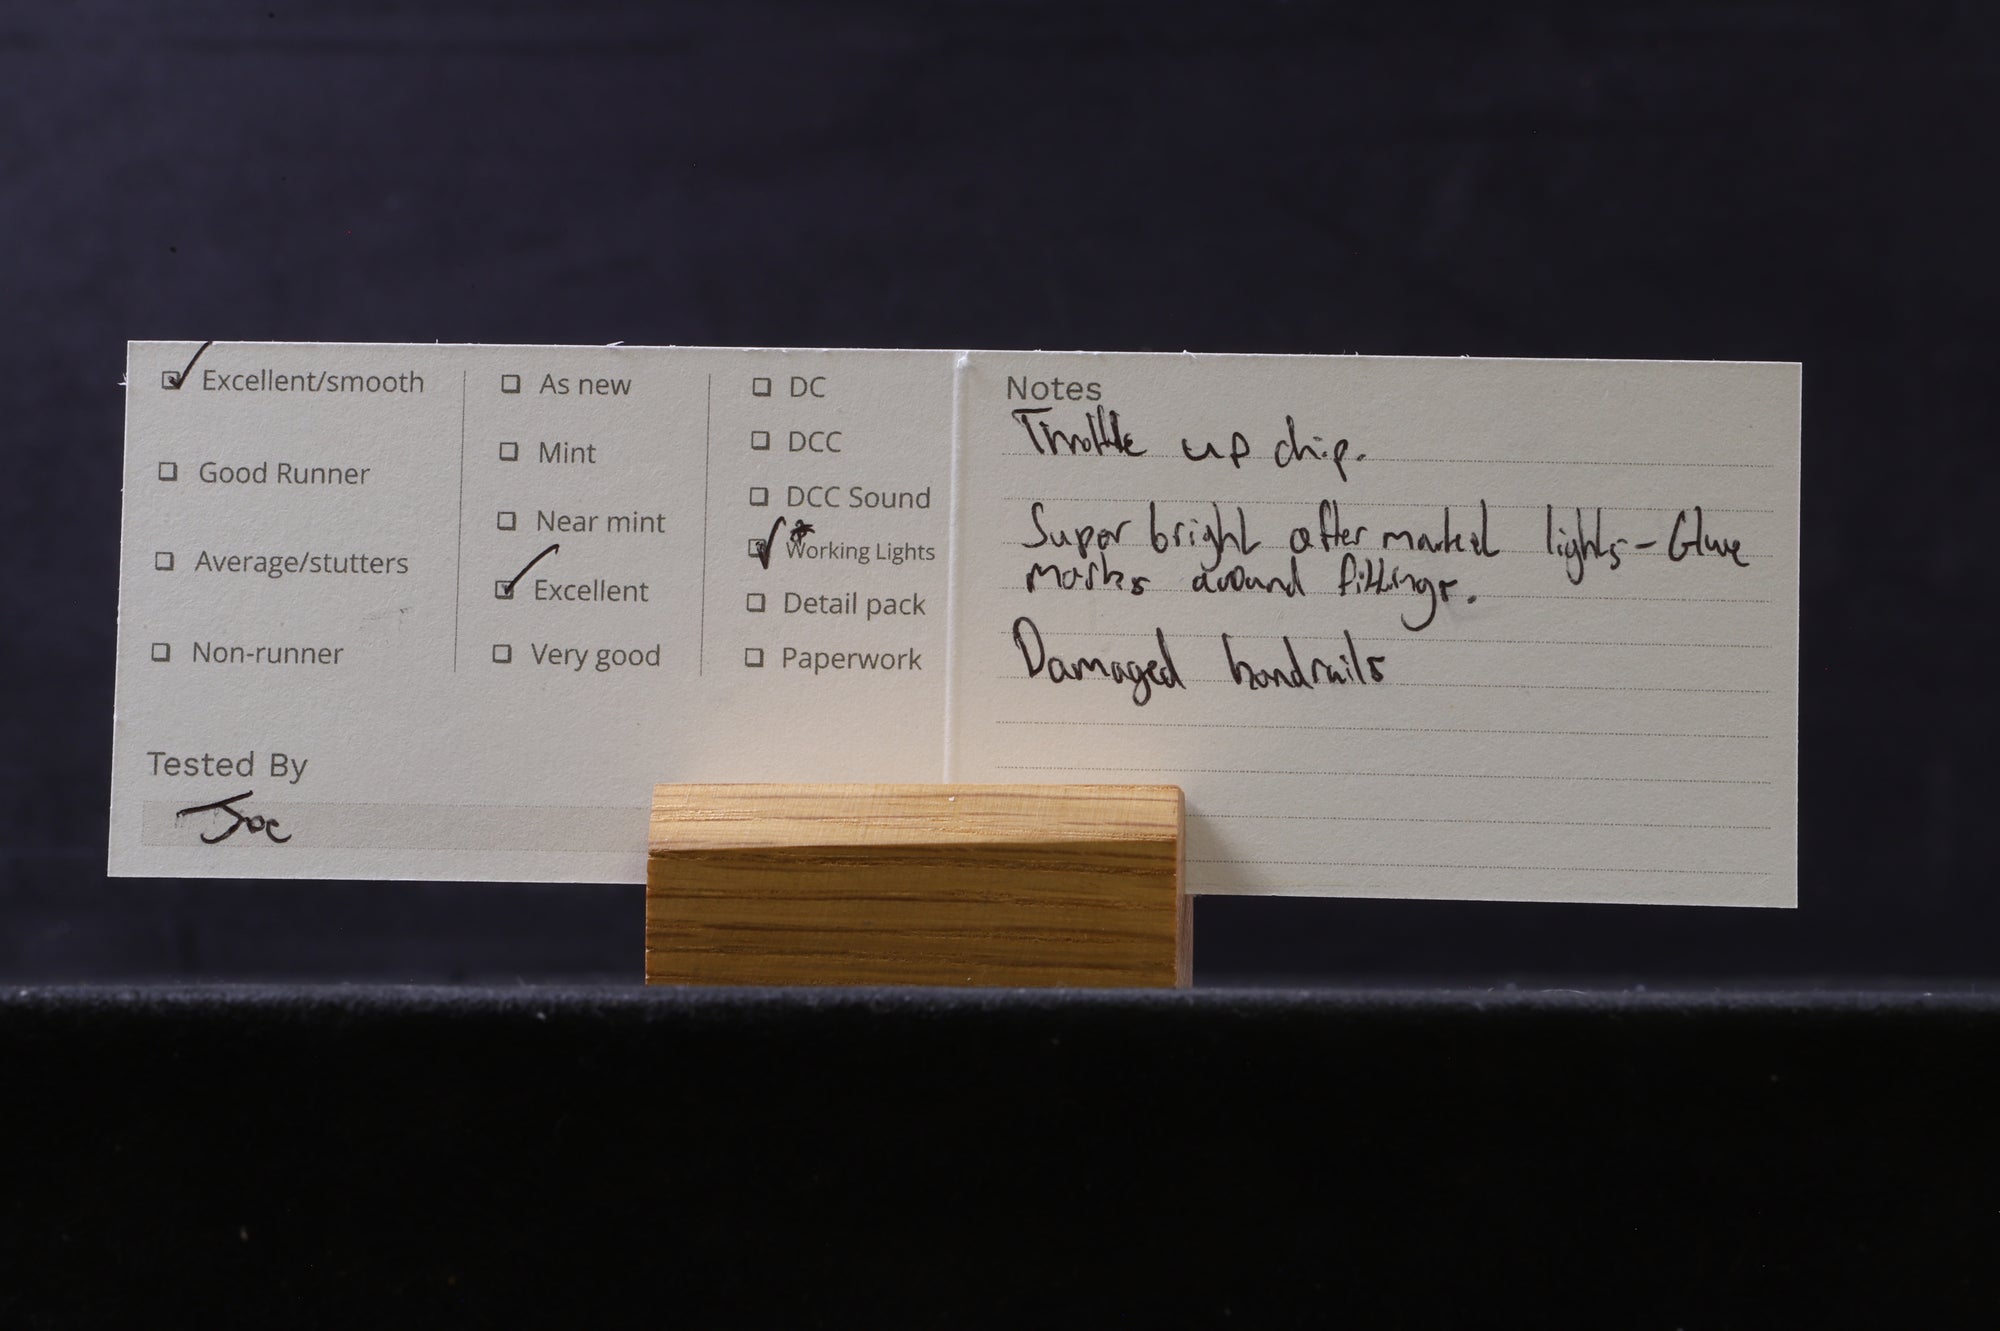 ☑ Excellent/smooth
☐ Good Runner
☐ Average/stutters
☐ Non-runner
☐ As new
☐ Mint
☐ Near mint
☑ Excellent
☐ Very good
☐ DC
☐ DCC
☐ DCC Sound
☑ *Working Lights
☐ Detail pack
☐ Paperwork
Tested By
Joe
Notes
Throttle up chip.
Super bright after market lights - Glue
marks around fittings.
Damaged handrails